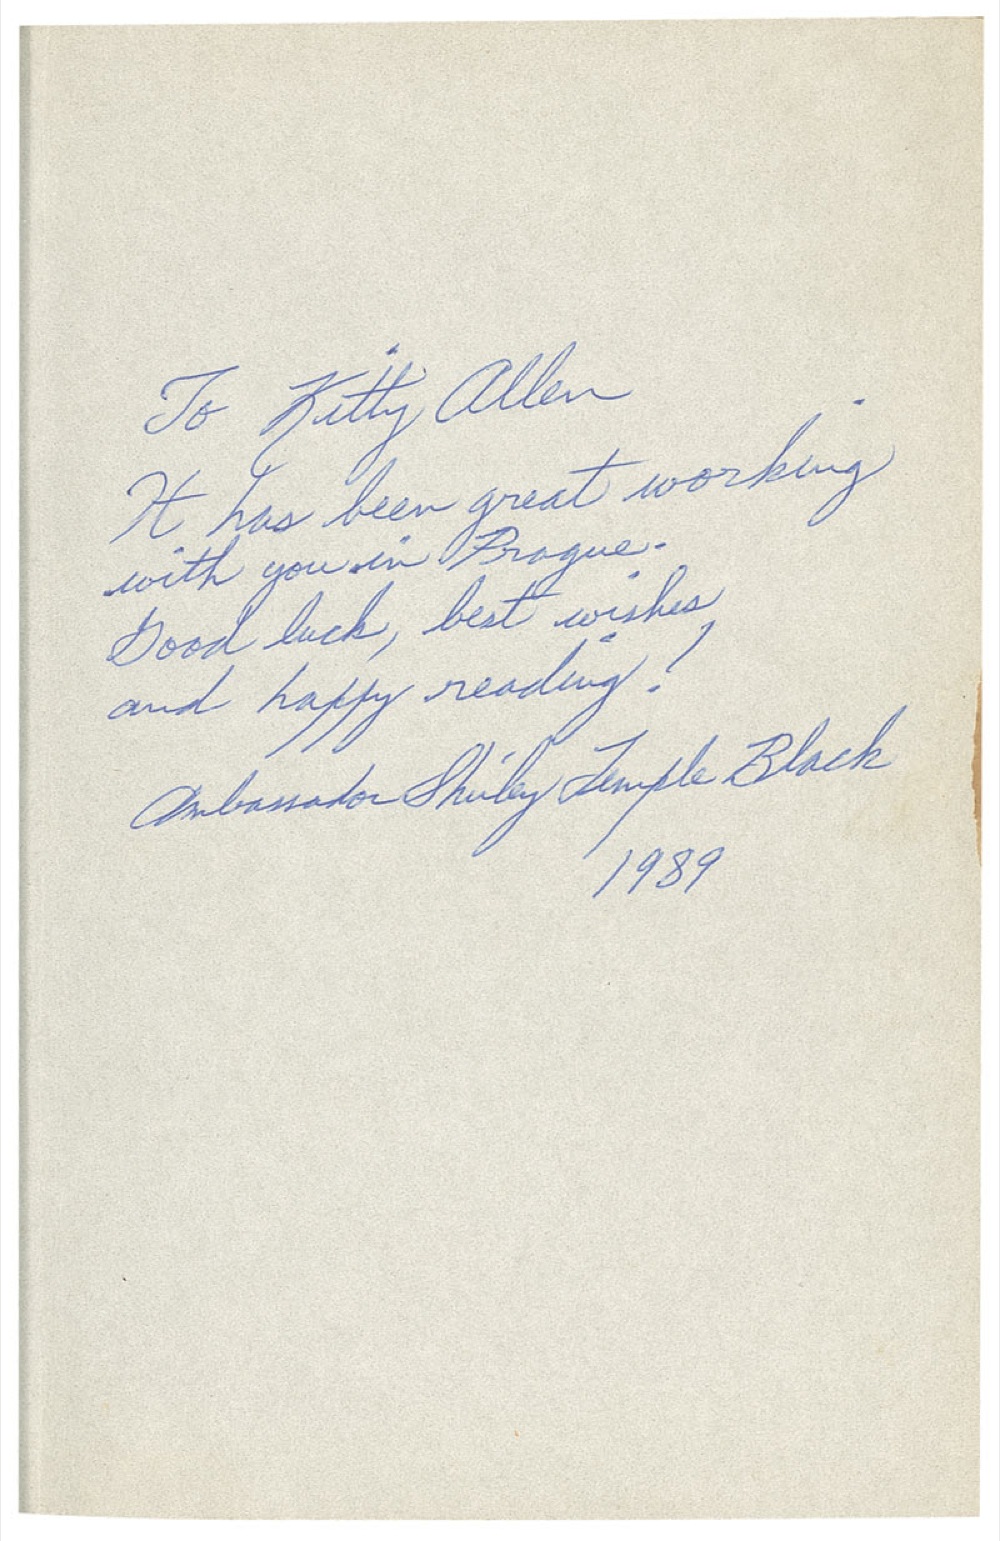 To Kitty Allen
It has been great working
with you in Prague.
Good luck, best wishes
and happy reading!
Ambassador Shirley Temple Black
1989